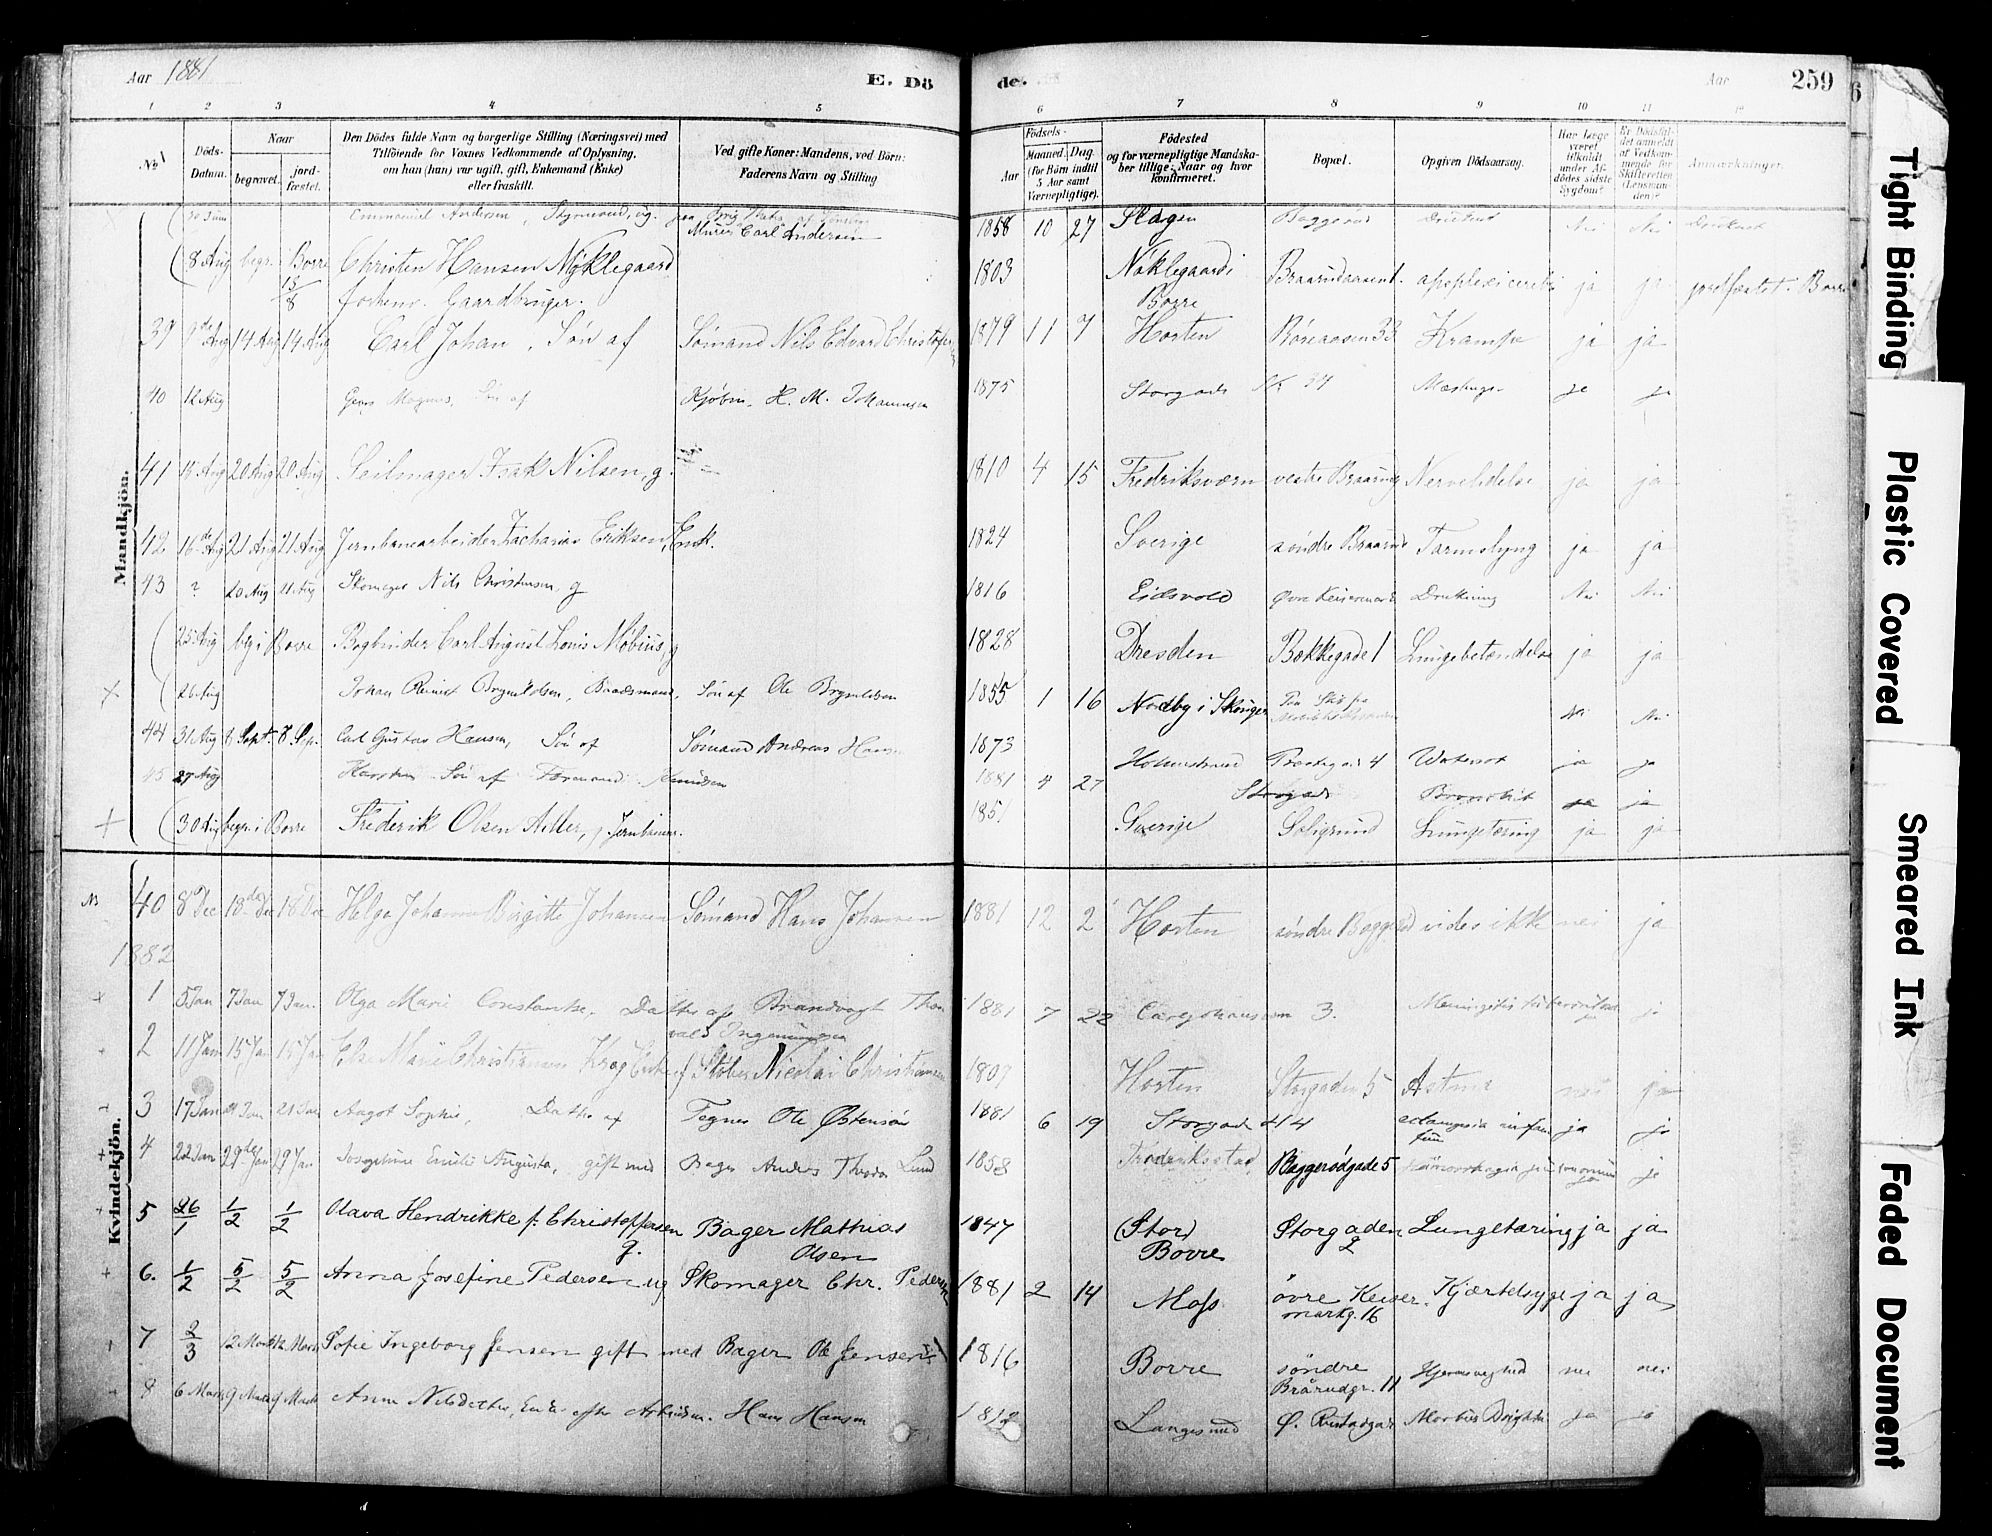 Aar 1881
E. Dö
de.
Aar
259
1 2 3 4 5 6 7 8 9 10 11 12
No
Döds-Datum.
Naar
begravet.
jord-fæstet.
Den Dödes fulde Navn og borgerlige Stilling (Næringsvei) med
Tilföiende for Voxnes Vedkommende af Oplysning,
om han (hun) var ugift, gift, Enkemand (Enke)
eller fraskilt.
Ved gifte Koner: Mandens, ved Börn:
Faderens Navn og Stilling
Födsels-
Aar
Maaned. Dag.
(for Börn indtil
5 Aar samt
Værnepligtige).
Födested
og for værnepligtige Mandska-
ber tillige: Naar og hvor
konfirmeret.
Bopæl.
Opgiven Dödsaarsag.
Har Læge
været
tilkaldt
under Af-
dödes sidste
Sygdom?
Er Dödsfal-
det anmeldt
af Vedkom-
mende for
Skifteretten
(Lensman-
den)?
Anmærkninger.
Mandkjön.
Emmanuel Andersen, Styrmand, ug.
Murer Carl Andersen
1858 10 27 Slagen Baggerød Druknet Nei Nei Druknet
8 Aug begr. Borre 15/8 Christen Hansen Nøklegaard
forhenv. Gaardbruger.
1803 Nøklegaard i Borre apoplexi cerebri ja ja jordfæstet i Borre
39 9de Aug 14 Aug 14 Aug Carl Johan, Søn af Sømand Nils Edvard Christofersen 1879 11 7 Horten Røreaasen 33 Krampe ja ja
40 12 Aug Georg Magnus, Søn af Kjøbm. H. M. Johannesen 1875 Storgade No 34 ja ja
41 15 Aug 20 Aug 20 Aug Seilmager Isak Nilsen, g. 1810 4 15 Fredriksværn vestre Braarud Nervelidelse ja ja
42 16de Aug 21 Aug 21 Aug Jernbanearbeider Zacharias Eriksen, Enk. 1824 Sverige søndre Braarud Tarmslyng ja ja
43 ? 20 Aug 21 Aug Skomager Nils Christensen, g 1816 Eidsvold Øvre Keisermark Drukning Nei Nei
25 Aug beg i Borre Bogbinder Carl August Louis Møbius, g 1828 Dresden Bakkegade 1 Lungebetændelse ja ja
26 Aug Johan Reinert Brynildsen, Baadsmand, Søn af Ole Brynildsen 1855 1 16 Nordby i Skouger Nei Nei
44 31 Aug 8 Sept. 8 Sep. Carl Gustav Hansen, Søn af Sømand Andreas Hansen 1873 Holmestrand 4 Watersot ja ja
45 27 Aug Karsten Søn af Formand Knudsen 1881 4 27 Storgade Bronchit ja ja
30 Aug begr. i Borre Frederik Olsen Adler, Jernbanear. 1851 Sverige Soligrund Lungetæring ja ja
Kvindekjön.
No 40 8 Dec 18de Dec 18 Dec Helga Johanne Birgitte Johansen Sømand Hans Johansen 1881 12 2 Horten søndre Baggerød vides ikke nei ja
1882
1 5 Jan 7 Jan 7 Jan. Olga Marie Constanse, Datter af Brandvagt Thor
vald Ingemundsen 1881 7 22 Carljohans 3. Meningitis tuberculosa ja
2 11 Jan 15 Jan 15 Jan Else Marie Christiansen Krog Enke f Støber Nicolai Christiansen 1807 Horten Storgaden 5 Astma nei ja
3 17 Jan 21 Jan 21 Jan Aagot Sophie, Datter af Tegner Ole Østensøn 1881 6 19 Storgade 44 eclampsia infan
tum ja ja
4 22 Jan 29de Jan 29 Jan Josephine Emilie Augusta, gift med Bager Anders Theodor Lund 1858 Fredriksstad Baggerödgade 5 ja
5 26/1 1/2 1/2 Olava Hendrikke f. Christoffersen g. Bager Mathias Olsen 1847 (Stor) Borre Storgaden 2 Lungetæring ja ja
6. 1/2 5/2 5/2 Anna Josefine Pedersen ug Skomager Chr. Pedersen 1881 2 14 Moss øvre Keiser-
markg. 16 Kjærtelsyge ja ja
7 2/3 12 Marts 12 Marts Sofie Ingeborg Jensen gift med Bager Ole Jensen 1816 Borre søndre
Brårudgr. 11 nei nei
8 6 Marts 9 Marts 9 Marts Anne Nilsdatter, Enke efter Arbeidsm. Hans Hansen 1812 Langesund Ø. Rustadgade Morbus Brightii ja ja
Tight Binding
Plastic Covered
Smeared Ink
Faded Document